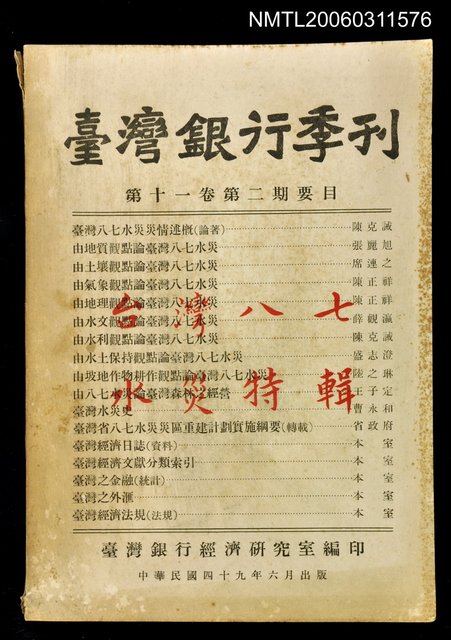 NMTL20060311576
臺灣銀行季刊
第十一卷第二期要目
臺灣八七水災災情述概(論著) 陳克誠
由地質觀點論臺灣八七水災 張麗旭
由土壤觀點論臺灣八七水災 席連之
由氣象觀點論臺灣八七水災 陳正祥
由地理觀點論臺灣八七水災 陳正祥
由水文觀點論臺灣八七水災 薛觀瀛
由水利觀點論臺灣八七水災 陳克誠
由水土保持觀點論臺灣八七水災 盛志澄
由坡地作物耕作觀點論臺灣八七水災 陸之琳
由八七水災論臺灣森林之經營 王子定
臺灣水災史 曹永和
臺灣省八七水災災區重建計劃實施綱要(轉載) 省政府
臺灣經濟日誌(資料) 本室
臺灣經濟文獻分類索引 本室
臺灣之金融(統計) 本室
臺灣之外滙 本室
臺灣經濟法規(法規) 本室
台灣八七
水災特輯
臺灣銀行經濟研究室編印
中華民國四十九年六月出版